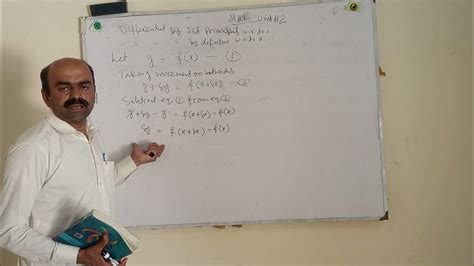 Math_Unit#2
Differential by 1st Principal w.r.to x
" " by definition w.r.to x.
Let y = f(x) — ①
Taking increment on both sides
y+δy = f(x+δx) — ②
Subtract eq ① from eq ②
y+δy - y = f(x+δx) - f(x)
δy = f(x+δx) - f(x)